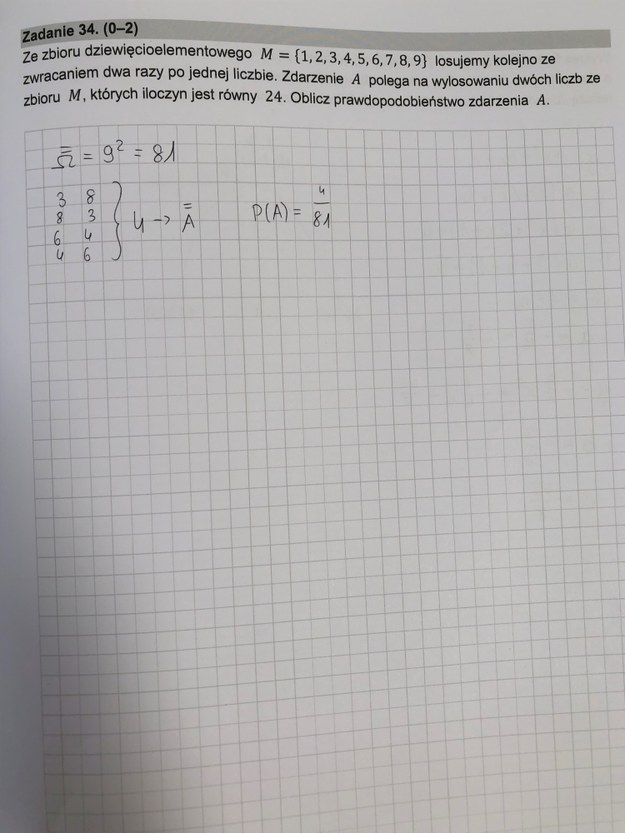 Zadanie 34. (0–2)
Ze zbioru dziewięcioelementowego M = {1, 2, 3, 4, 5, 6, 7, 8, 9} losujemy kolejno ze
zwracaniem dwa razy po jednej liczbie. Zdarzenie A polega na wylosowaniu dwóch liczb ze
zbioru M, których iloczyn jest równy 24. Oblicz prawdopodobieństwo zdarzenia A.
Ω̿ = 9² = 81
3 8
8 3
6 4
4 6
} 4 → A̿
P(A) = 4/81